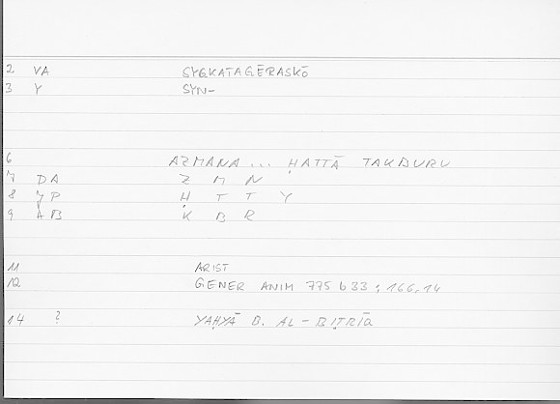 2 VA SYGKATAGĒRASKŌ
3 Y SYN-
6 AZMANA ... ḤATTĀ TAKBURU
7 DA Z M N
8 JP Ḥ T T Y
9 ĀB K B R
11 ARIST
12 GENER ANIM 775 b 33 ; 166,14
14 ? YAḤYĀ B. AL-BIṬRĪQ